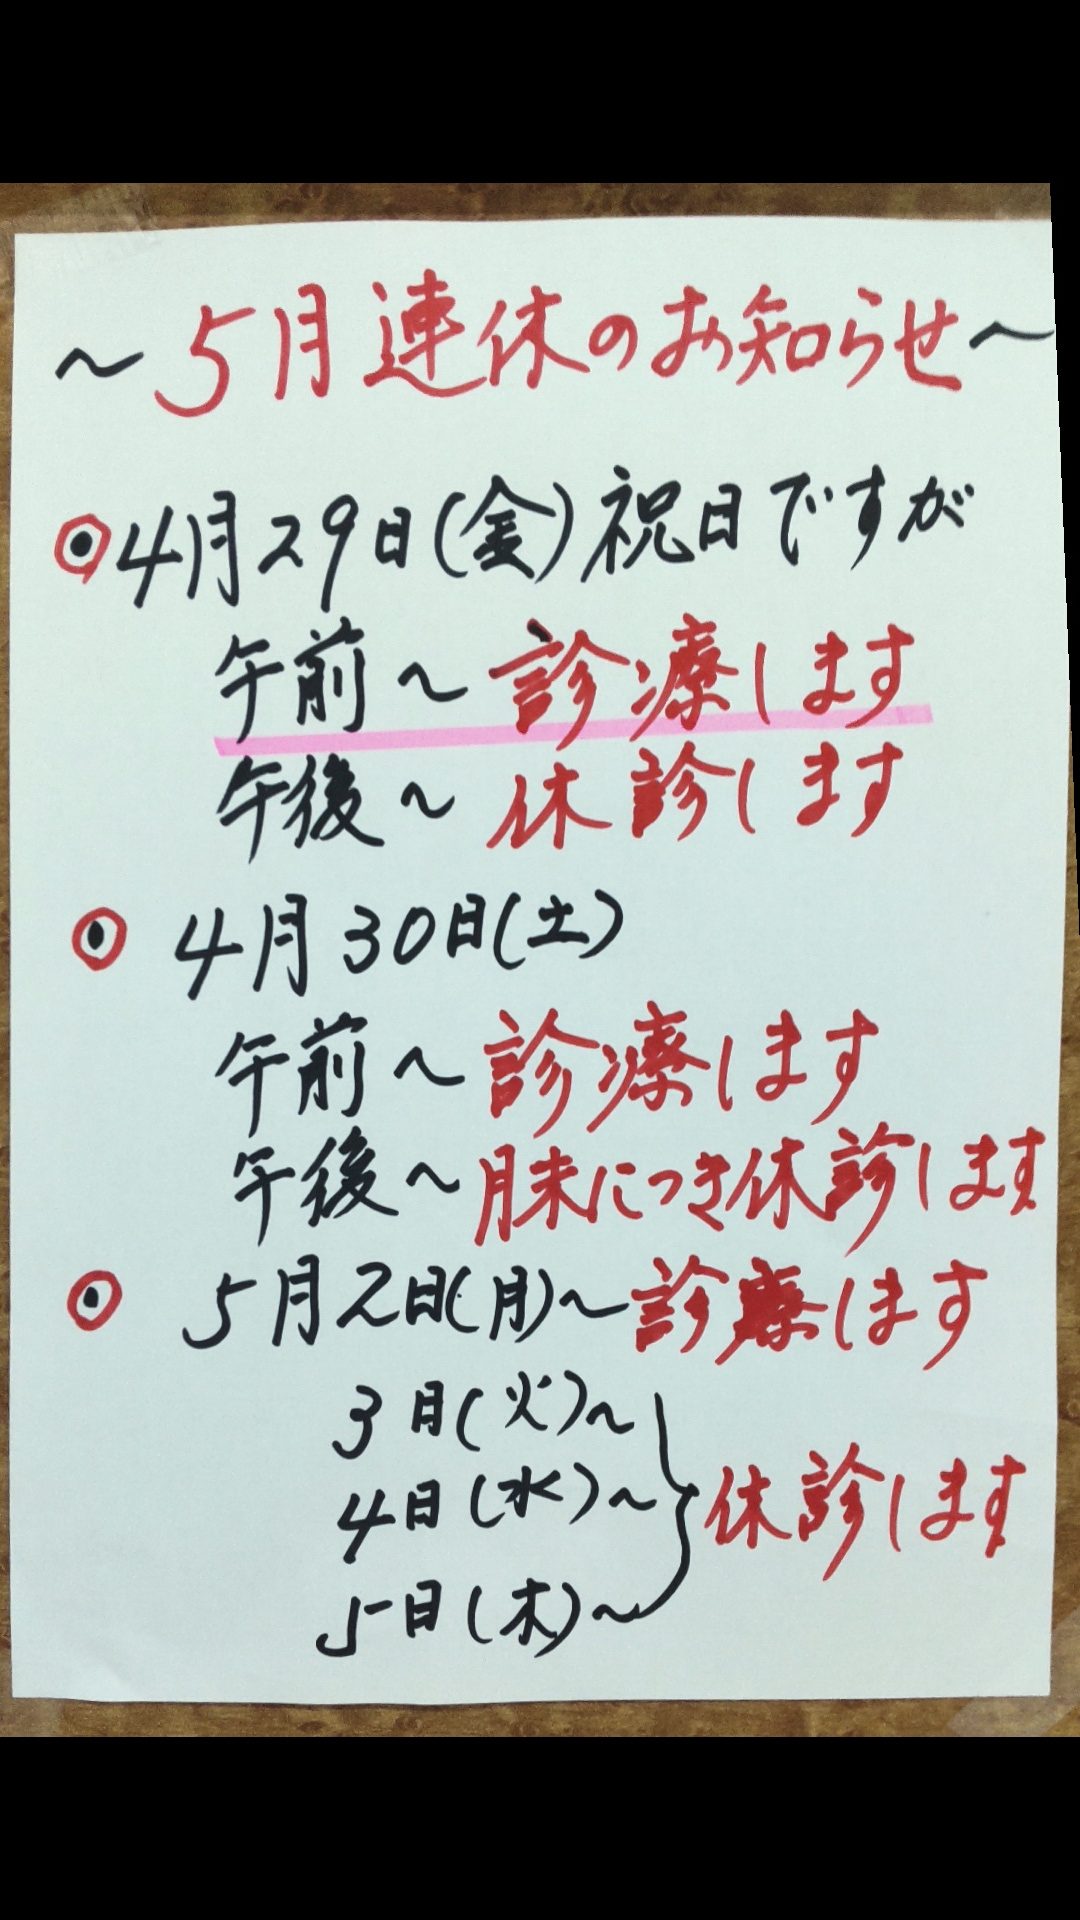 〜5月連休のお知らせ〜
◉4月29日(金)祝日ですが
午前〜診療します
午後〜休診します
◉4月30日(土)
午前〜診療します
午後〜月末につき休診します
◉5月2日(月)〜診療します
3日(火)〜
4日(水)〜 休診します
5日(木)〜